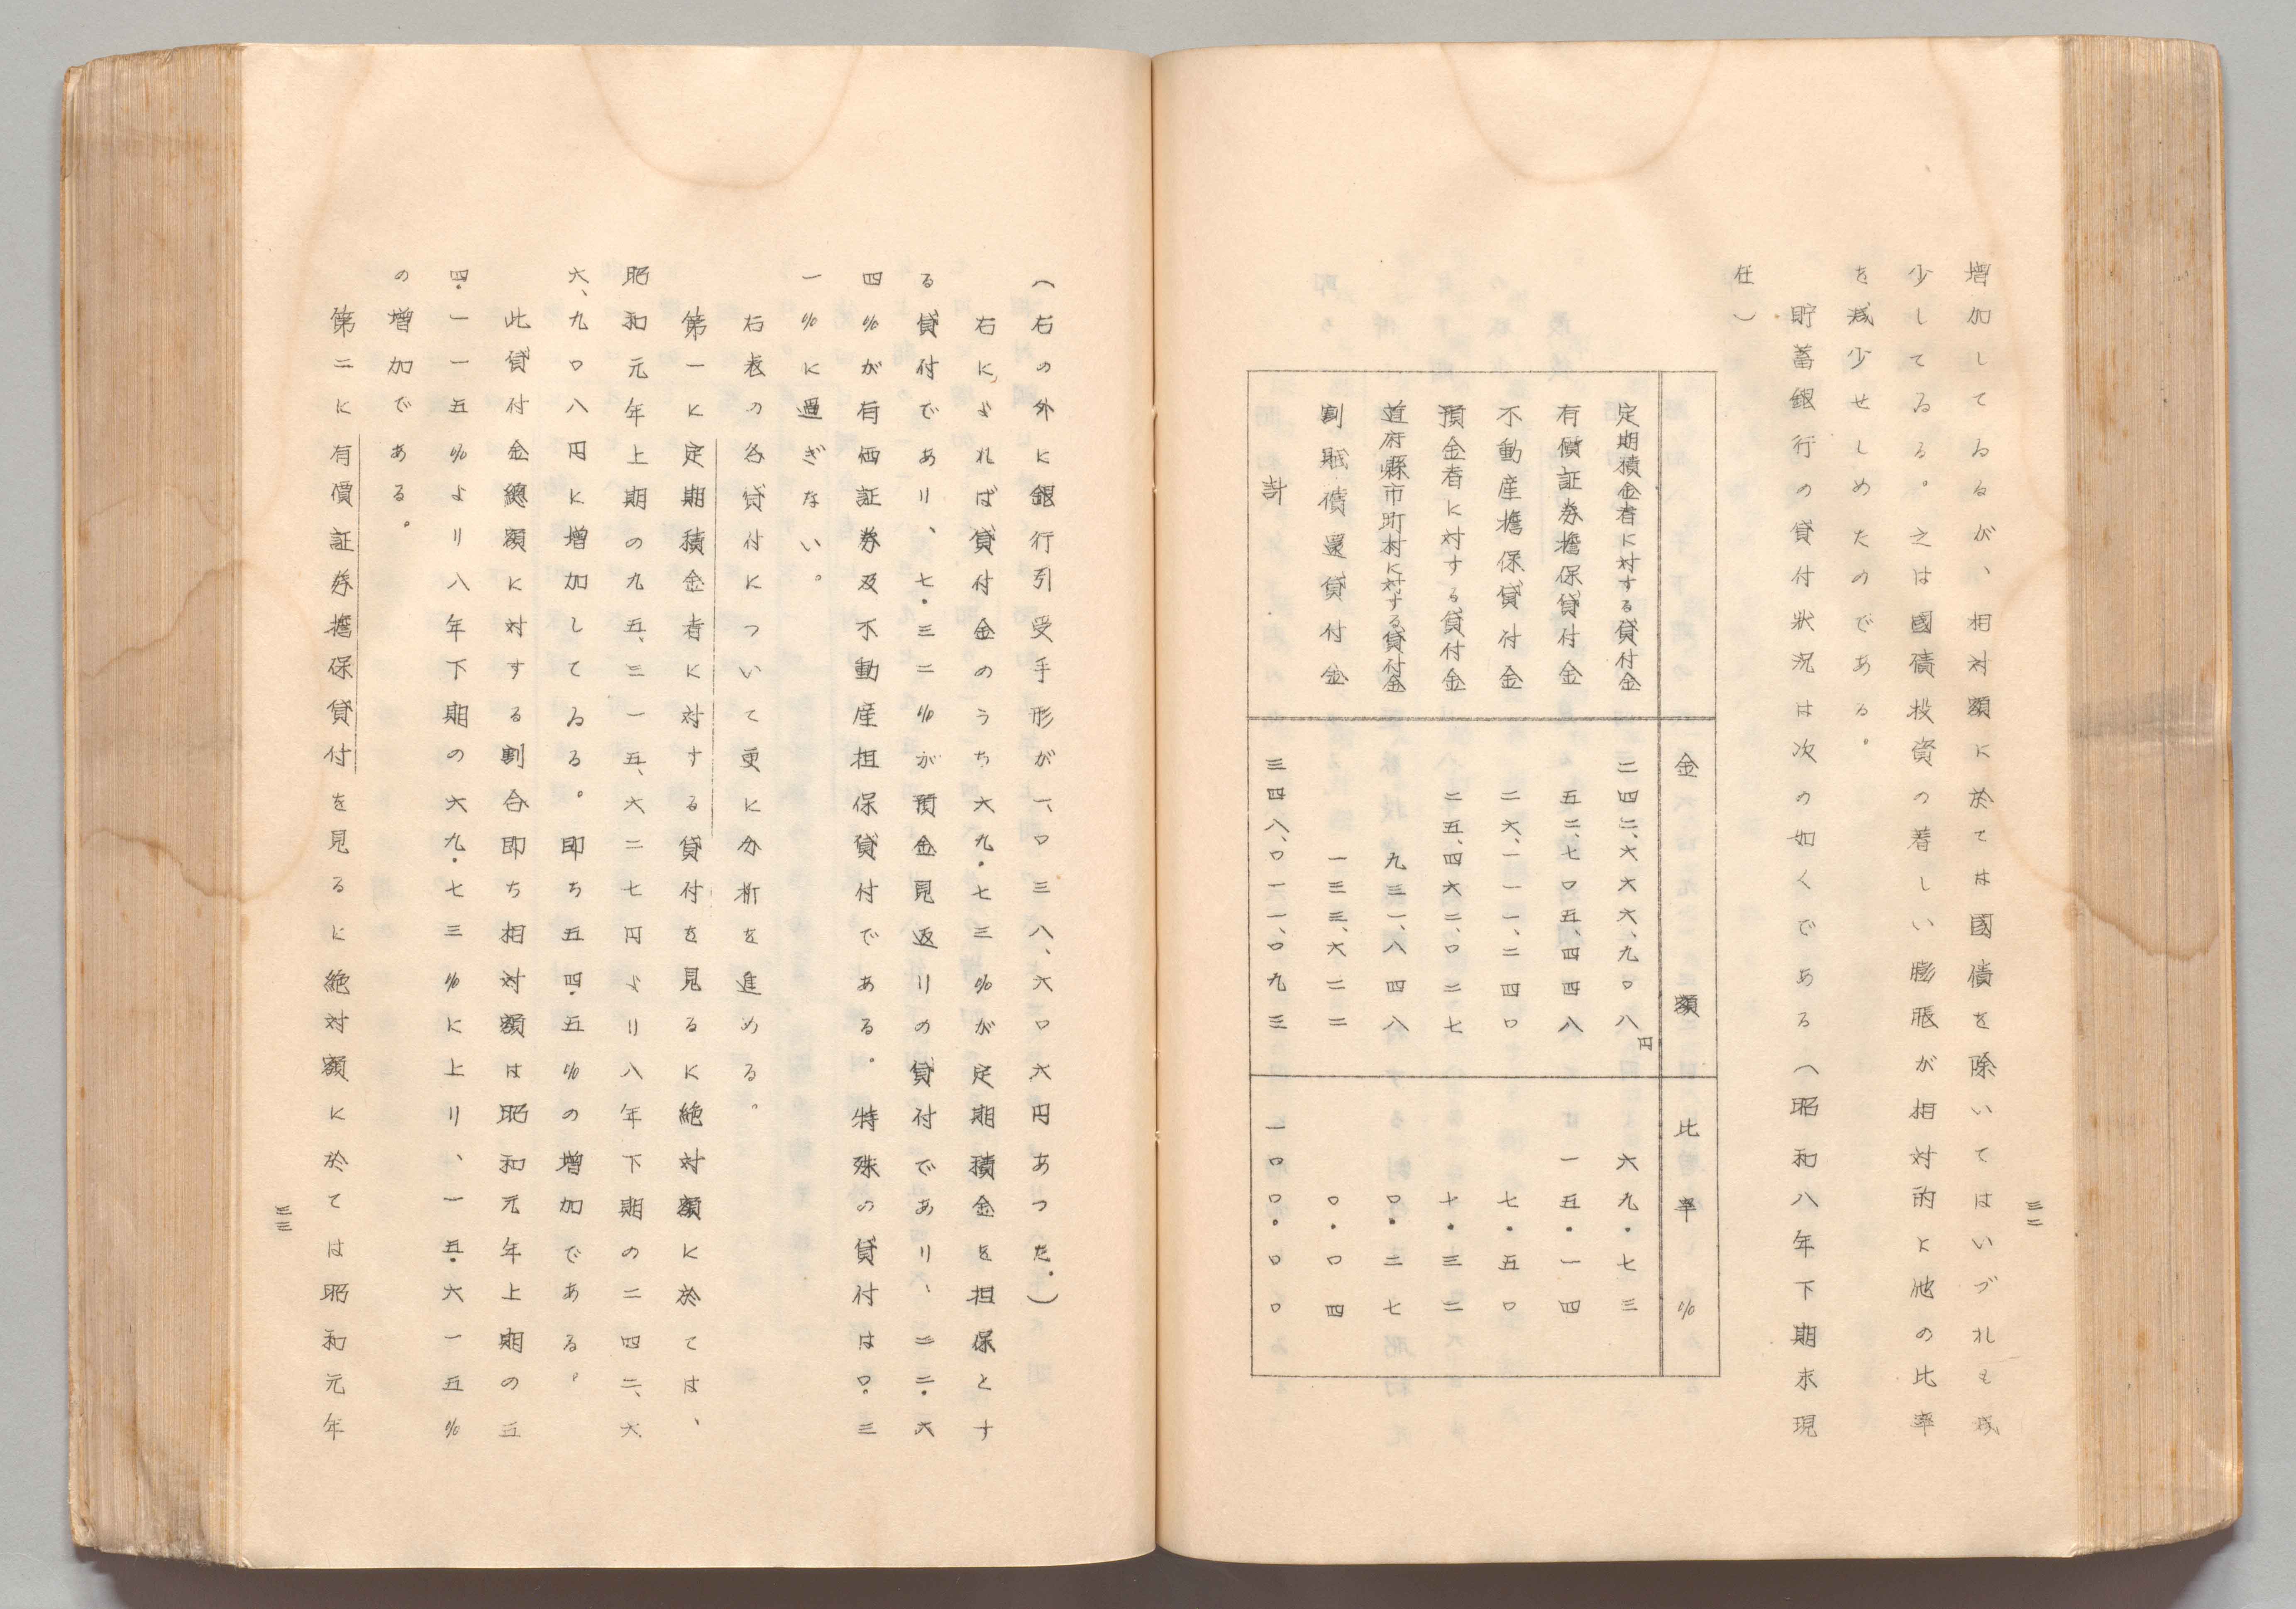 三二
増加してゐるが、相対額に於ては國債を除いてはいづれも减
少してゐる。之は國債投資の著しい膨脹が相対的に他の比率
を减少せしめたのである。
貯蓄銀行の貸付狀況は次の如くである(昭和八年下期末現
在)
金額 比率%
定期積金者に対する貸付金 二四二、六六六、九〇八円 六九・七三
有價証券擔保貸付金 五二、七〇五、四四八 一五・一四
不動産擔保貸付金 二六、一一一、二四〇 七・五〇
預金者に対する貸付金 二五、四六二、〇二七 七・三二
道府縣市町村に対する貸付金 九三一、八四八 〇・二七
割賦償還貸付金 一三三、六二二 〇・〇四
計 三四八、〇一一、〇九三 一〇〇・〇〇
(右の外に銀行引受手形が一、〇三八、六〇六円あつた。)
右によれば貸付金のうち六九・七三%が定期積金を担保とす
る貸付であり、七・三二%が預金見返りの貸付であり、二二・六
四%が有価証券及不動産担保貸付である。特殊の貸付は〇・三
一%に過ぎない。
右表の各貸付について更に分析を進める。
第一に定期積金者に対する貸付を見るに絶対額に於ては、
昭和元年上期の九五、二一五、六二七円より八年下期の二四二、六六
六、九〇八円に増加してゐる。即ち五四・五%の増加である。
此貸付金總額に対する割合即ち相対額は昭和元年上期の五
四・一一五%より八年下期の六九・七三%に上り、一五・六一五%
の増加である。
第二に有價証券擔保貸付を見るに絶対額に於ては昭和元年
三三